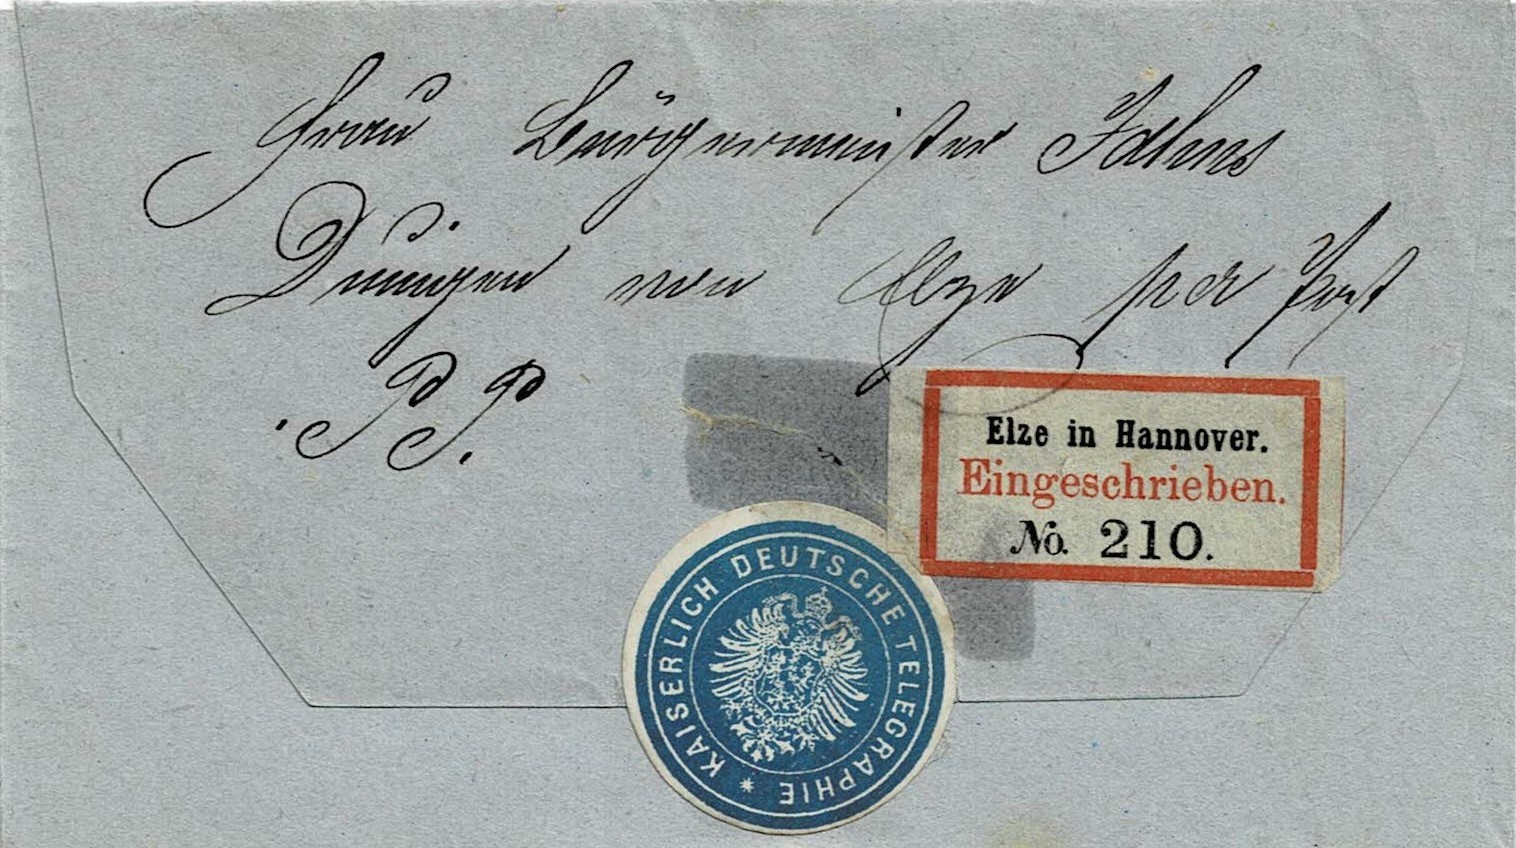 Frau Bürgermeister Jahns
Duingen von Elze per Post
P. P.
Elze in Hannover.
Eingeschrieben.
No. 210.
KAISERLICH DEUTSCHE TELEGRAPHIE *